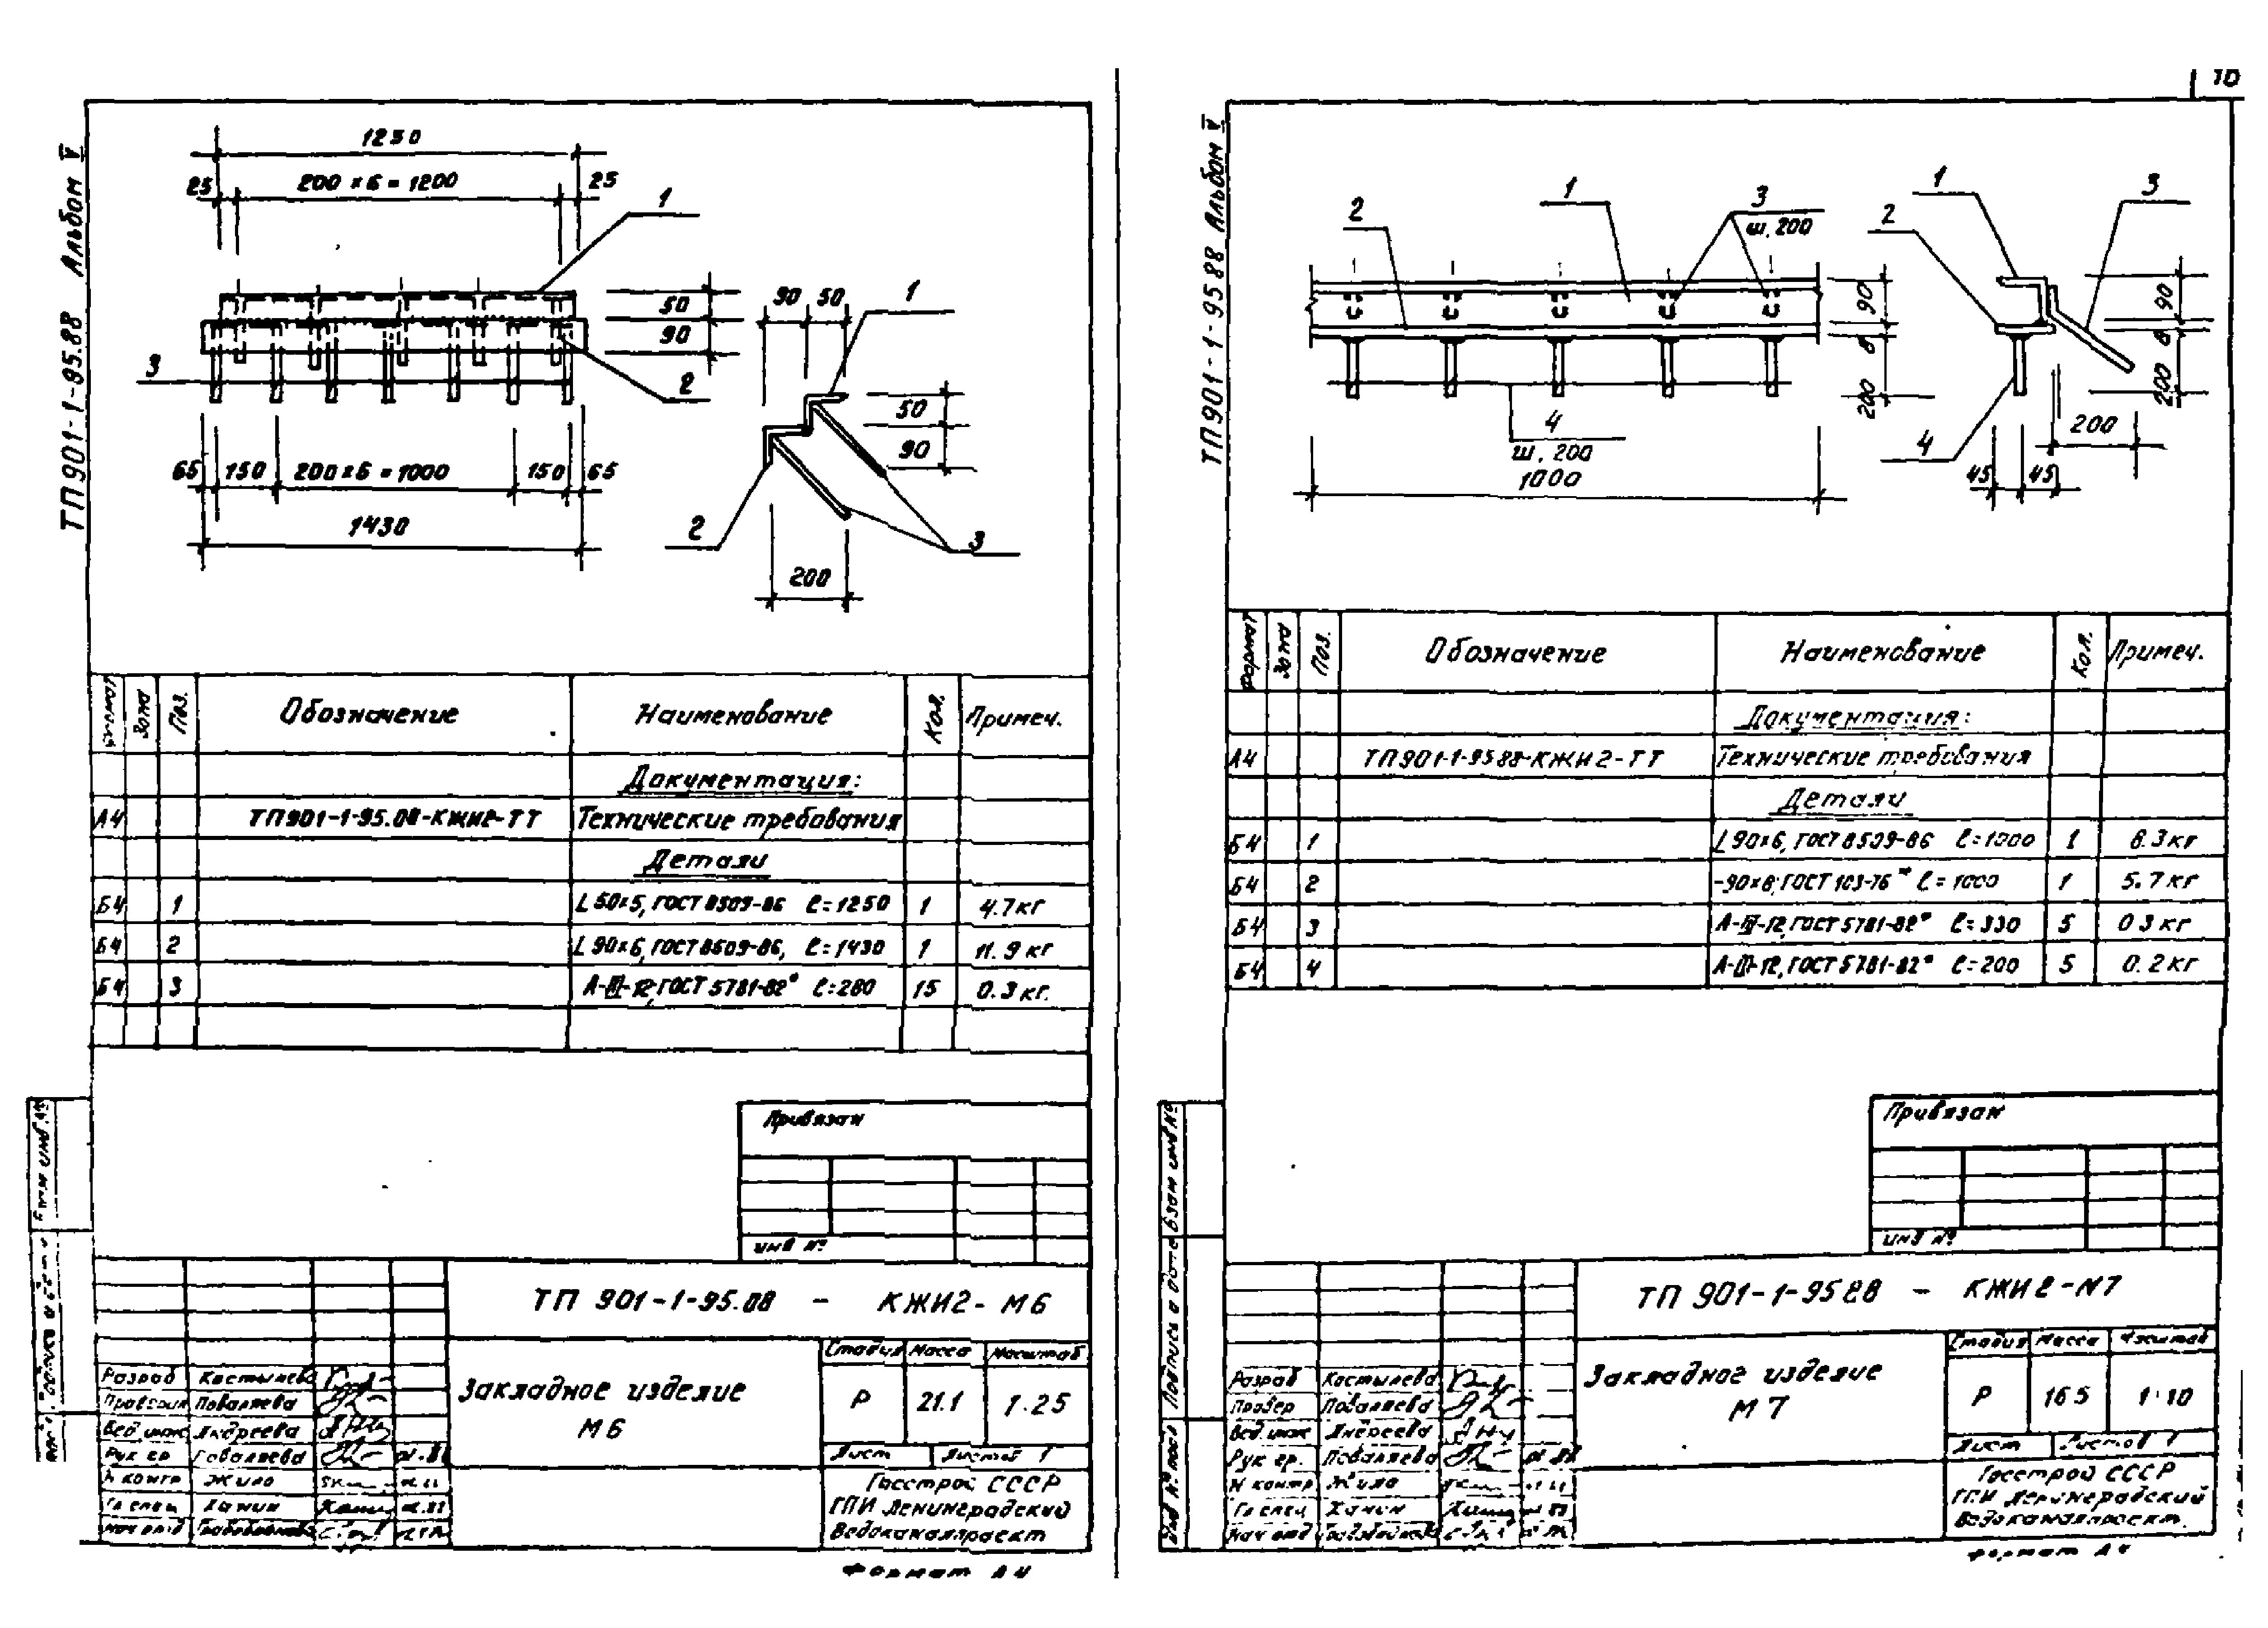 10
ТП901-1-95.88 Альбом V
1250
25 200×6=1200 25
1
50
90
3
2
65 150 200×6=1000 150 65
1430
90 50
1
50
90
2
3
200
Зона Поз. Обозначение Наименование Кол. Примеч.
Документация:
А4 ТП901-1-95.88-КЖИ2-ТТ Технические требования
Детали
Б4 1 L 50×5, ГОСТ 8509-86 ℓ=1250 1 4.7кг
Б4 2 L 90×6, ГОСТ 8509-86, ℓ=1430 1 11.9кг
Б4 3 А-III-12, ГОСТ 5781-82* ℓ=280 15 0.3кг.
Привязан
инв №
ТП 901-1-95.88 - КЖИ2-М6
Закладное изделие
М6
Стадия Масса Масштаб
Р 21.1 1:25
Лист Листов 1
Госстрой СССР
ГПИ Ленинградский
Водоканалпроект
Разраб Костылева
Поваляева
Вед. инж Андреева
Рук гр Поваляева
Н контр Жило
Гл спец Ханин
Нач отд
Формат А4
ТП901-1-95.88 Альбом V
2 1 3
ш. 200
90
8
200
4
ш. 200
1000
1 3
2
90
8
200
4
200
45 45
Формат Зона Поз. Обозначение Наименование Кол. Примеч.
Документация:
А4 ТП901-1-95.88-КЖИ2-ТТ Технические требования
Детали
Б4 1 L 90×6, ГОСТ 8509-86 ℓ=1000 1 8.3кг
Б4 2 -90×8, ГОСТ 103-76* ℓ=1000 1 5.7кг
Б4 3 А-III-12, ГОСТ 5781-82* ℓ=330 5 0.3кг
Б4 4 А-III-12, ГОСТ 5781-82* ℓ=200 5 0.2кг
Привязан
инв №
Взам инв №
Подпись и дата
Инв № подл
ТП 901-1-95.88 - КЖИ2-М7
Закладное изделие
М7
Стадия Масса Масштаб
Р 16.5 1:10
Лист Листов 1
Госстрой СССР
ГПИ Ленинградский
Водоканалпроект
Разраб Костылева
Провер Поваляева
Вед. инж Андреева
Рук гр. Поваляева
Н контр Жило
Гл спец Ханин
Нач отд
Формат А4